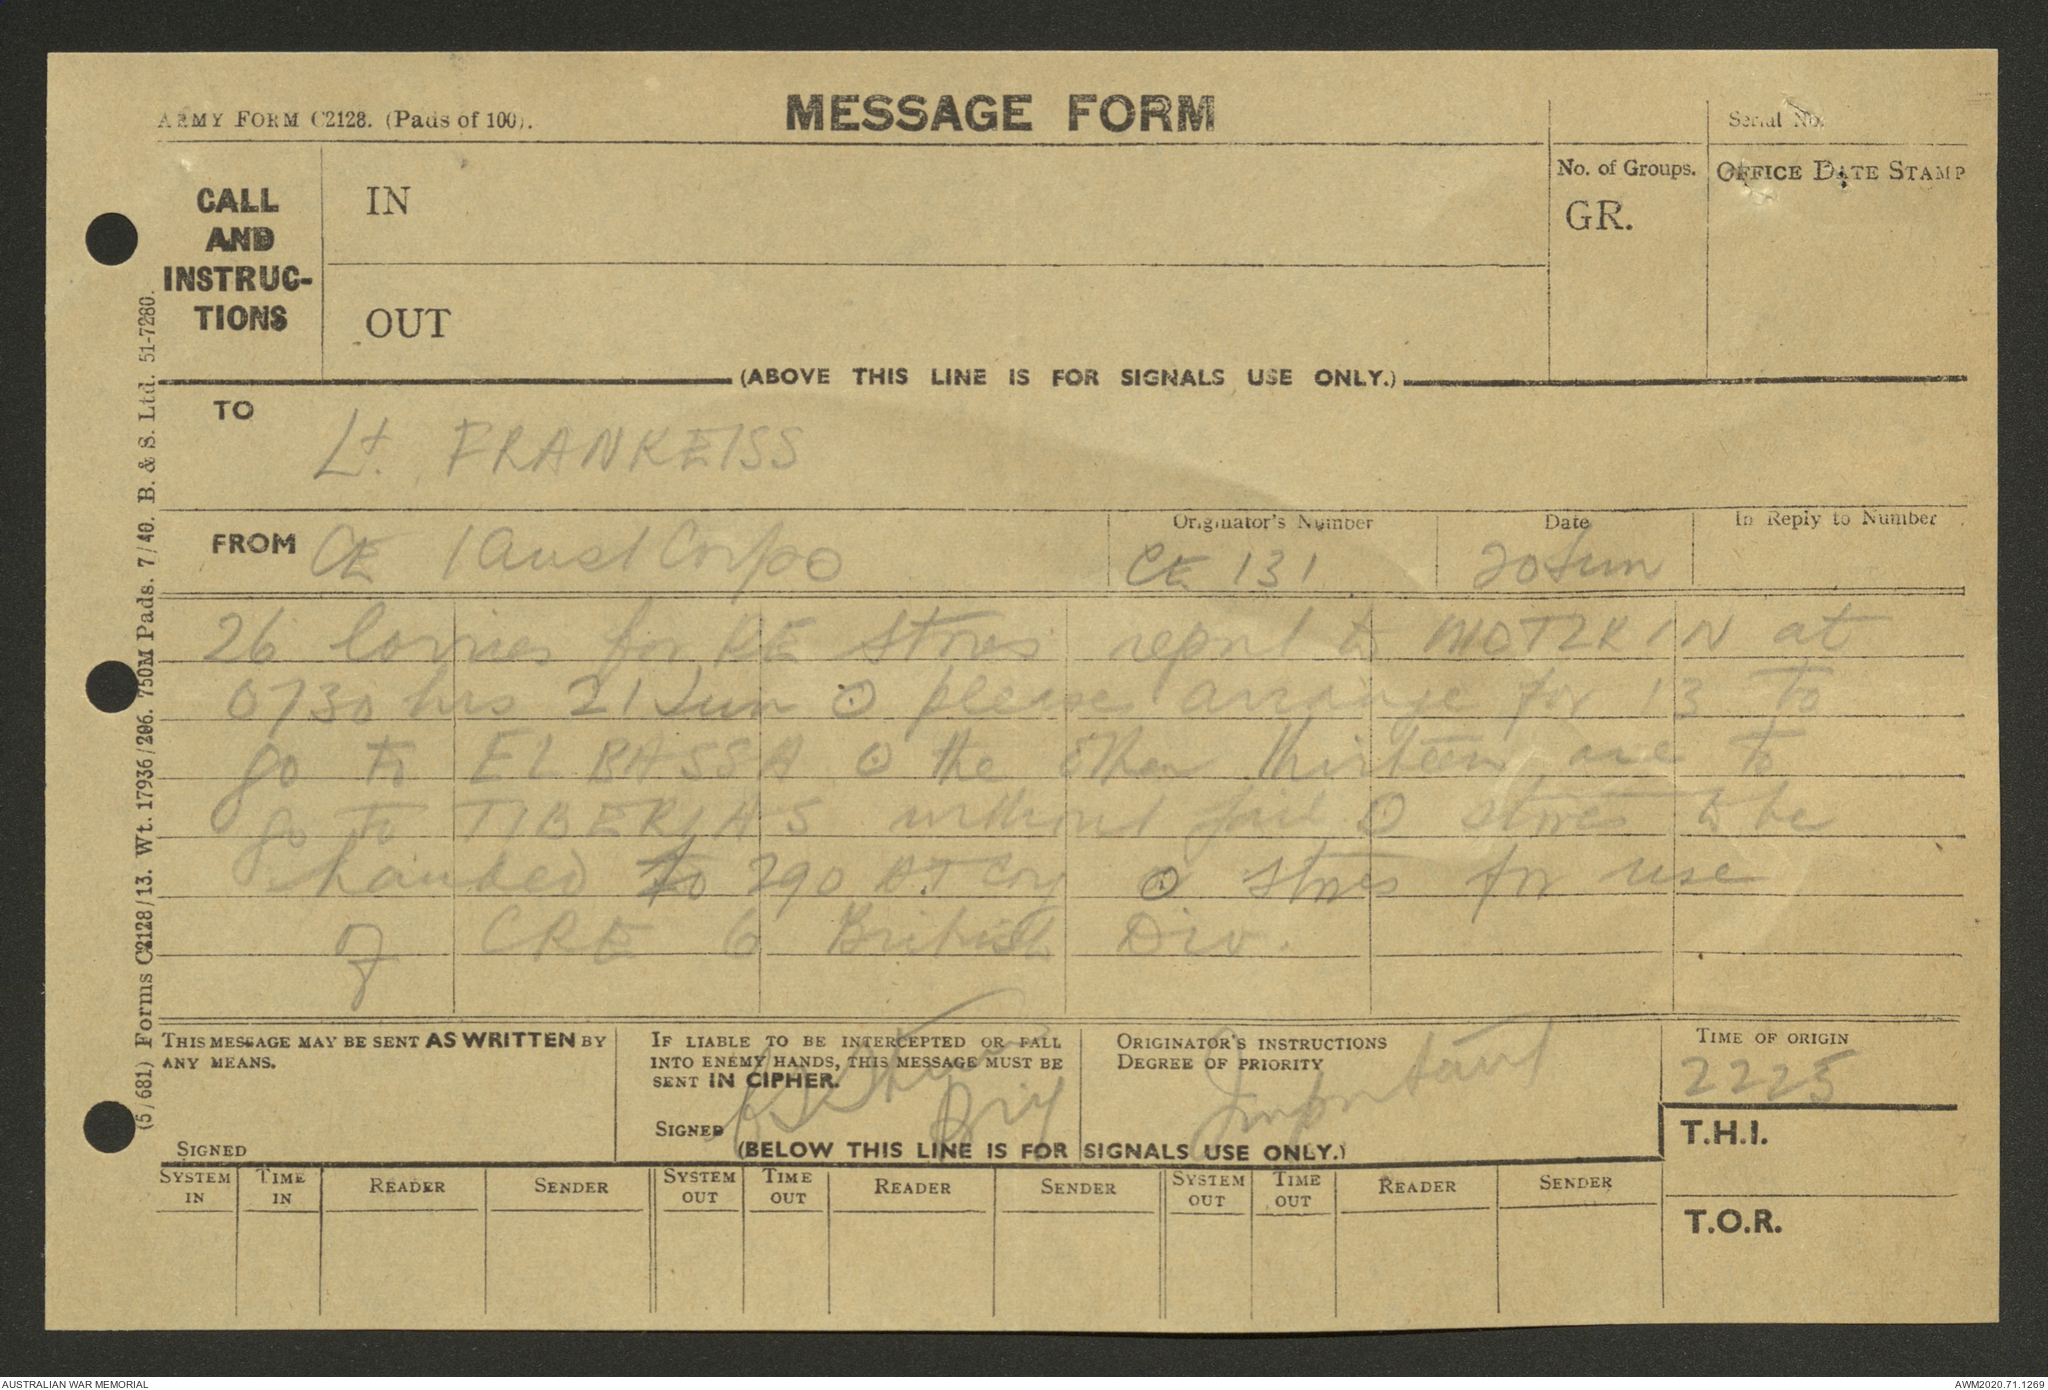 ARMY FORM C2128. (Pads of 100).
MESSAGE FORM
Serial No.
CALL AND INSTRUC-TIONS
IN
OUT
No. of Groups.
GR.
OFFICE DATE STAMP
(ABOVE THIS LINE IS FOR SIGNALS USE ONLY.)
TO
Lt. FRANKEISS
FROM CE 1 Aust Corps
Originator's Number
CE 131
Date
20 Jun
In Reply to Number
26 lorries for RE stores report to MOTZKIN at
0730 hrs 21 Jun O please arrange for 13 to
go to EL BASSA O the other thirteen are to
go to TIBERIAS without fail O stores to be
handed to 290 AT Coy O stores for use
of CRE 6 British Div.
THIS MESSAGE MAY BE SENT AS WRITTEN BY
ANY MEANS.
SIGNED
IF LIABLE TO BE INTERCEPTED OR FALL
INTO ENEMY HANDS, THIS MESSAGE MUST BE
SENT IN CIPHER.
SIGNED
Brig
ORIGINATOR'S INSTRUCTIONS
DEGREE OF PRIORITY
Important
TIME OF ORIGIN
2225
T.H.I.
T.O.R.
(BELOW THIS LINE IS FOR SIGNALS USE ONLY.)
SYSTEM IN
TIME IN
READER
SENDER
SYSTEM OUT
TIME OUT
READER
SENDER
SYSTEM OUT
TIME OUT
READER
SENDER
(5/681) Forms C2128/13. Wt. 17936/206. 750M Pads. 7/40. B. & S. Ltd. 51-7280.
AUSTRALIAN WAR MEMORIAL
AWM2020.71.1269